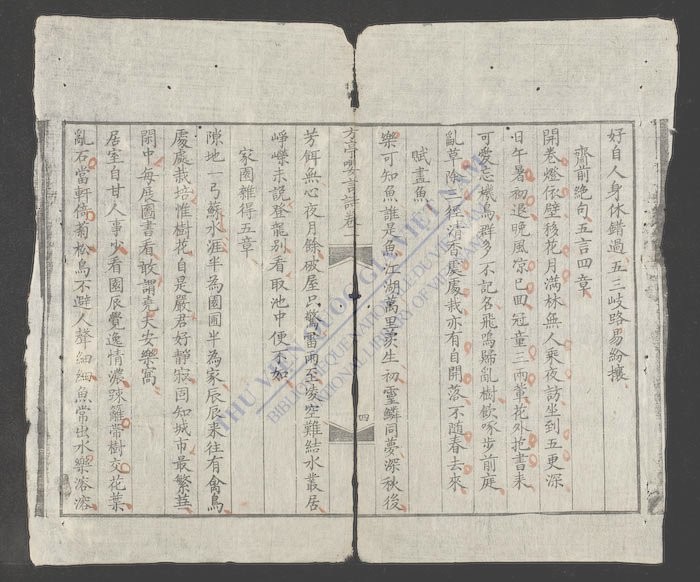 好自人身休錯過五三岐路易紛攘
齋前絶句五言四章
開卷燈依壁移花月滿林無人乘夜訪坐到五更深
日午暑初退晚風凉已回冠童三兩軰花外抱書来
可愛忘機鳥群多不記名飛鳴歸亂樹飲啄步前庭
亂草除三徑清香處處栽亦有自開落不随春去來
賦畫魚
樂可知魚誰是魚江湖萬里羨生初靈鱗同夢深秋後
芳餌無心夜月餘破屋只驚雷雨至凌空難結水叢居
崢嶸未說登龍别看取池中便不如
家園雜得五章
隙地一弓蘇水涯半為園圃半為家辰辰来往有禽鳥
處處栽培惟樹花自是嚴君好静寂固知城市最繁華
閑中每展圖書看敢謂堯夫安樂窩
居室自甘人事少看園辰覺逸情濃踈籬帶樹交花葉
亂石當軒倚菊松鳥不避人聲細細魚常出水樂溶溶
方亭嬰言詩卷一
四
THƯ VIỆN QUỐC GIA VIỆT NAM
BIBLIOTHÈQUE NATIONALE DU VIETNAM
NATIONAL LIBRARY OF VIETNAM